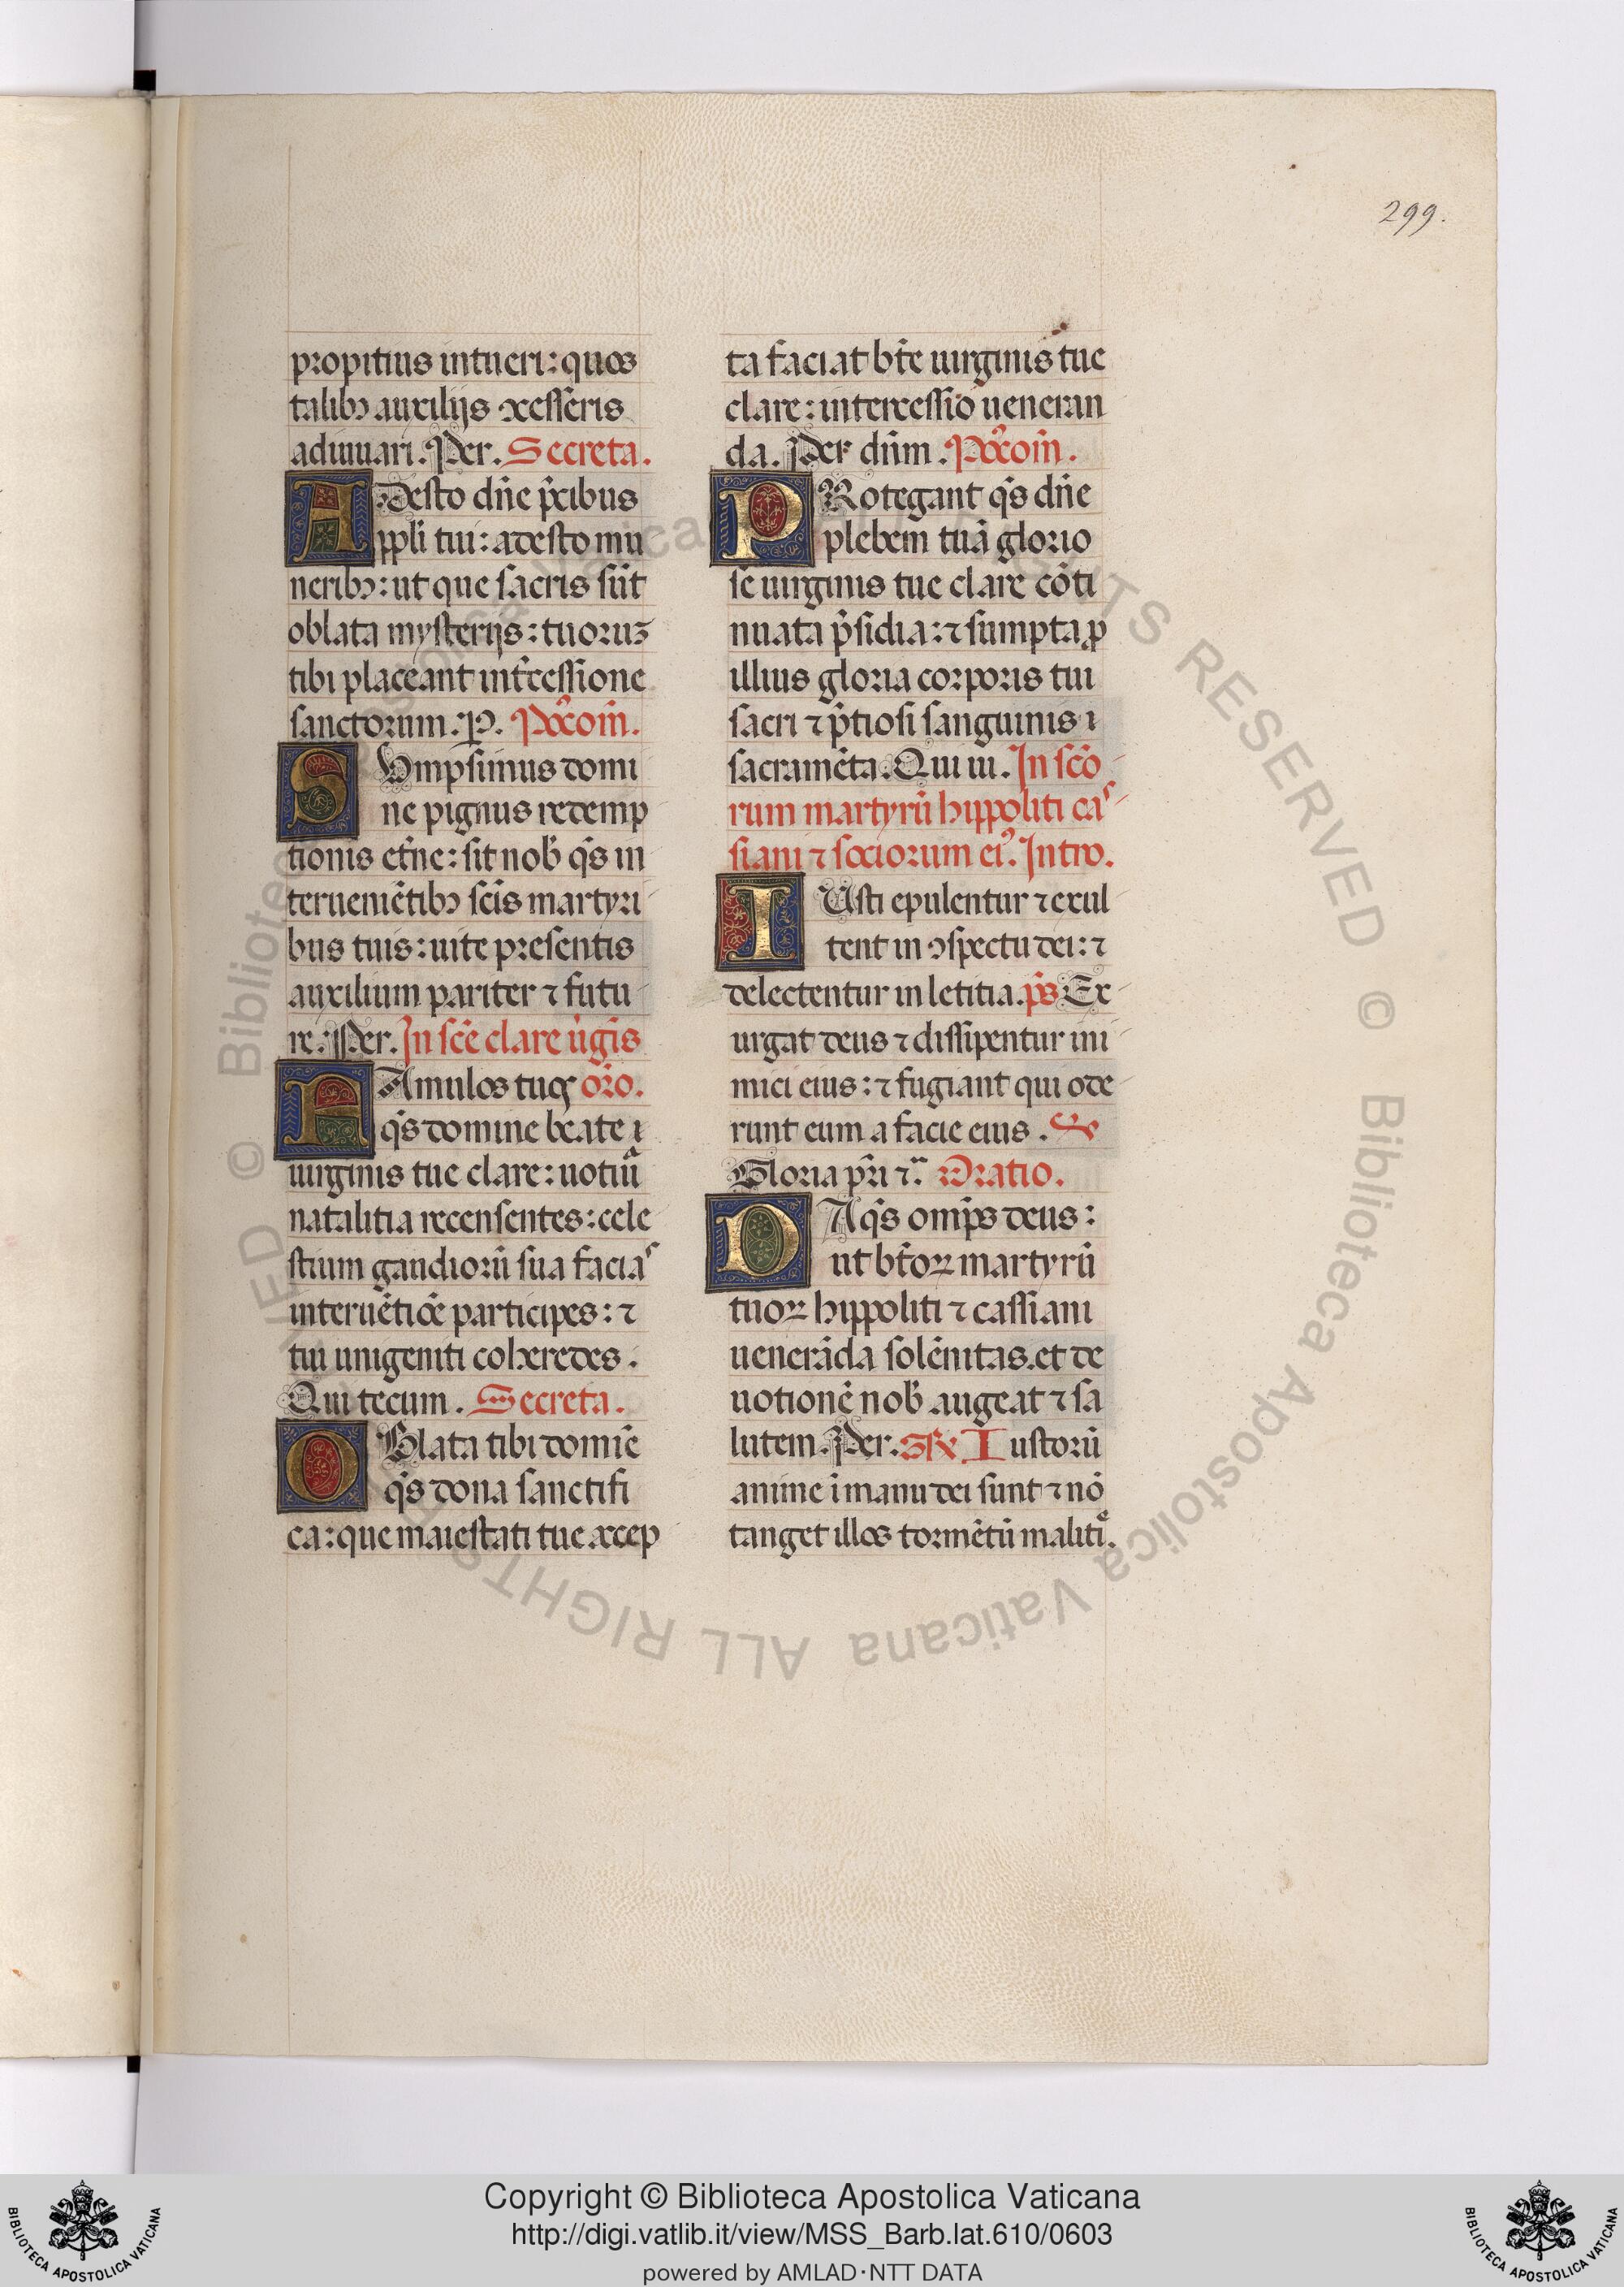 299.
propitius intueri: quos
talibꝰ auxilijs ↄcesseris
adiuuari. Per. Secreta.
ADesto dn̄e p̄cibus
ppl̄i tui: adesto mu
neribꝰ: ut que sacris sūt
oblata mysterijs: tuoruꝫ
tibi placeant int̄cessione
sanctorum. P.
SUmpsimus domi
ne pignus redemp
tionis et̄ne: sit nob̄ q̄s in
terueniētibꝰ sc̄is martyri
bus tuis: uite presentis
auxilium pariter ⁊ futu
re. Per. In sc̄e clare ūgis
FAmulos tuos or̄o.
q̄s domine beate
uirginis tue clare: uotiua
natalitia recensentes: cele
stium gaudiorū sua facias
interuētiōe participes: ⁊
tui unigeniti coheredes.
Qui tecum. Secreta.
OBlata tibi domīe
q̄s dona sanctifi
ca: que maiestati tue accep
ta faciat bt̄e uirginis tue
clare: intercessio ueneran
da. Per dn̄m.
PRotegant q̄s dn̄e
plebem tuā glorio
se uirginis tue clare cōti
nuata p̄sidia: ⁊ sumpta ꝓ
illius gloria corporis tui
sacri ⁊ p̄tiosi sanguinis
sacramēta. Qui ui. In sc̄o
rum martyrū hippoliti cas
siani ⁊ sociorum eiꝰ. Intro.
IUsti epulentur ⁊ exul
tent in ↄspectu dei: ⁊
delectentur in letitia. p̄s Ex
urgat deus ⁊ dissipentur ini
mici eius: ⁊ fugiant qui ode
runt eum a facie eius.
Gloria pr̄i ⁊c̄ Oratio.
DA q̄s omp̄s deus:
ut bt̄oꝝ martyrū
tuoꝝ hippoliti ⁊ cassiani
uenerāda solēnitas. et de
uotionē nob̄ augeat ⁊ sa
lutem. Per. Gꝶ Iustorū
anime ī manu dei sunt ⁊ nō
tanget illos tormētū malitie.
© Biblioteca Apostolica Vaticana ALL RIGHTS RESERVED
Copyright © Biblioteca Apostolica Vaticana
http://digi.vatlib.it/view/MSS_Barb.lat.610/0603
powered by AMLAD·NTT DATA
BIBLIOTECA APOSTOLICA VATICANA
BIBLIOTECA APOSTOLICA VATICANA